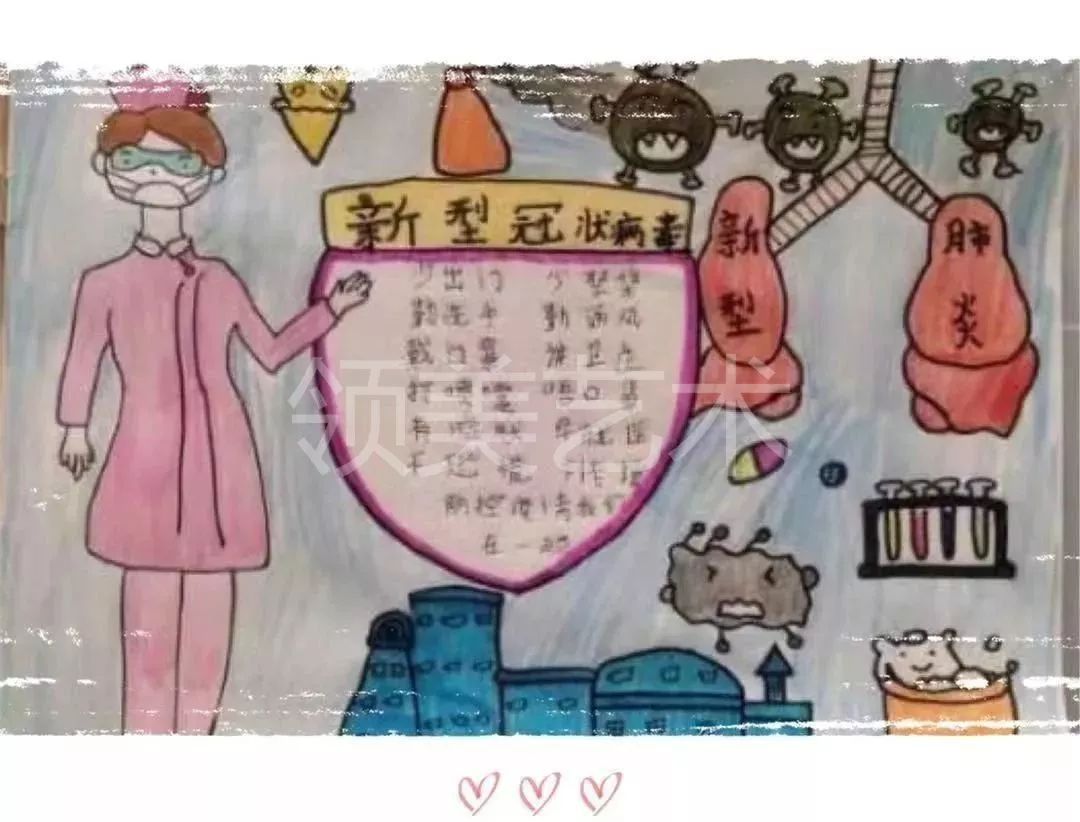 新型冠状病毒
新型
肺炎
少出门 少聚集
勤洗手 勤通风
戴口罩 讲卫生
打喷嚏 捂口鼻
有症状 早就医
不恐慌
防控疫情我们
在一起
领美艺术